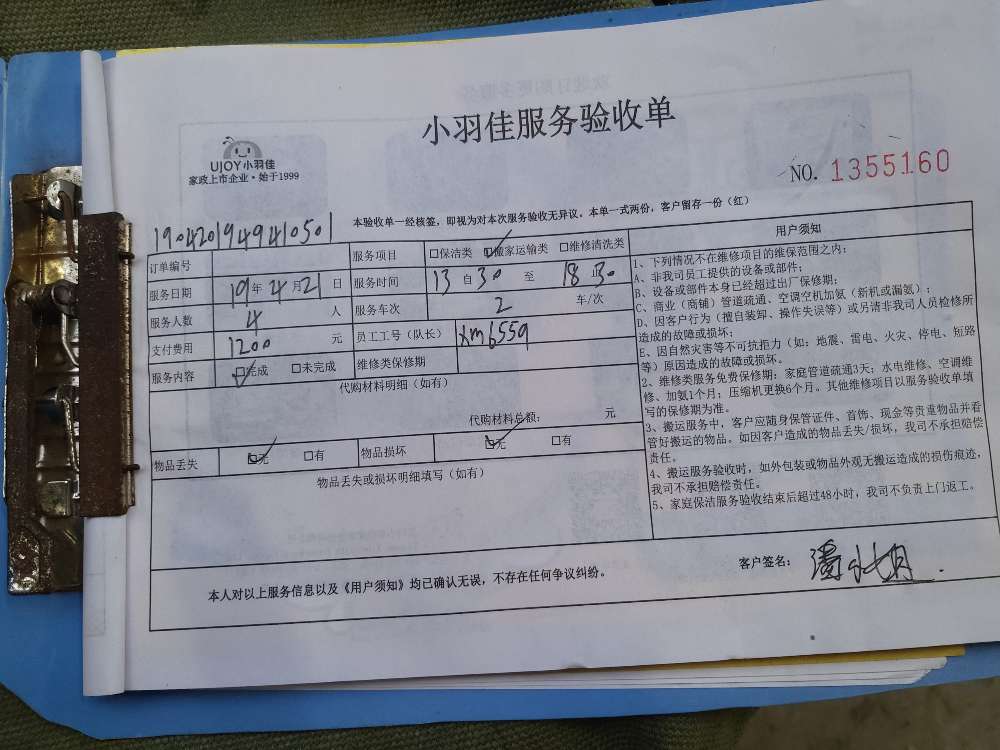 小羽佳服务验收单
UJOY小羽佳
家政上市企业·始于1999
NO. 1355160
本验收单一经核签，即视为对本次服务验收无异议，本单一式两份，客户留存一份（红）
1904201949410501
订单编号
服务项目 □保洁类 □搬家运输类 □维修清洗类
服务日期 19年4月21日
服务时间 13自30至18 30
服务人数 4 人
服务车次 2 车/次
支付费用 1200 元
员工工号（队长） xm6559
服务内容 □完成 □未完成
维修类保修期
代购材料明细（如有）
代购材料总额： 元
物品丢失 □无 □有
物品损坏 □无 □有
物品丢失或损坏明细填写（如有）
用户须知
1、下列情况不在维修项目的维保范围之内：
A、非我司员工提供的设备或部件；
B、设备或部件本身已经超过出厂保修期；
C、商业（商铺）管道疏通、空调空机加氨（新机或漏氨）；
D、因客户行为（擅自装卸、操作失误等）或另请非我司人员检修所
造成的故障或损坏；
E、因自然灾害等不可抗拒力（如：地震、雷电、火灾、停电、短路
等）原因造成的故障或损坏。
2、维修类服务免费保修期：家庭管道疏通3天；水电维修、空调维
修、加氨1个月；压缩机更换6个月。其他维修项目以服务验收单填
写的保修期为准。
3、搬运服务中，客户应随身保管证件、首饰、现金等贵重物品并看
管好搬运的物品。如因客户造成的物品丢失/损坏，我司不承担赔偿
责任。
4、搬运服务验收时，如外包装或物品外观无搬运造成的损伤痕迹，
我司不承担赔偿责任。
5、家庭保洁服务验收结束后超过48小时，我司不负责上门返工。
本人对以上服务信息以及《用户须知》均已确认无误，不存在任何争议纠纷。
客户签名：